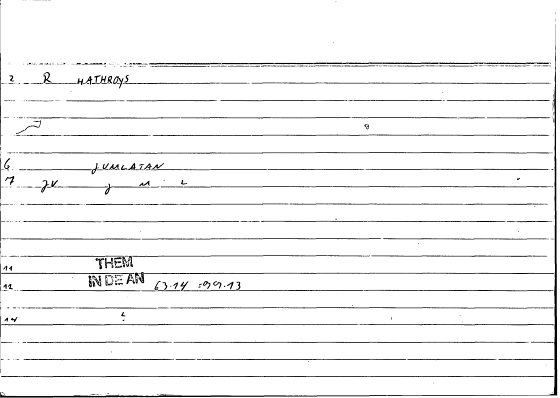 2 R HATHROYS
8
6 JUMLATAN
7 JV J M L
11 THEM
12 IN DE AN 63.14 :99.13
14 L